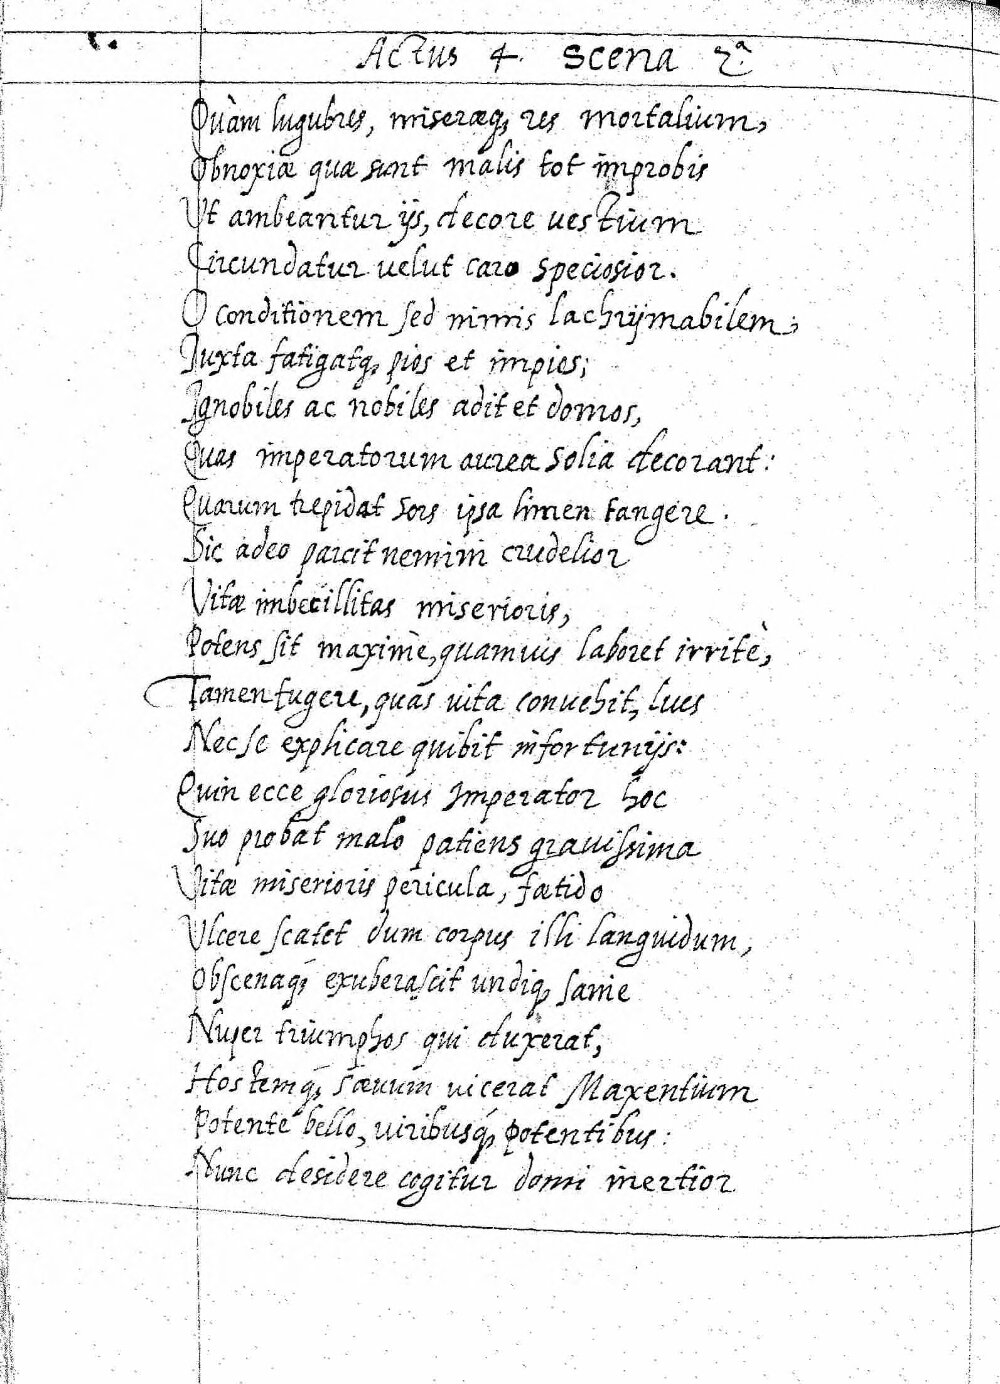 Actus 4. Scena 2.ª
Quàm lugubres, miseræq, res mortalium,
Obnoxiæ quæ sunt malis tot improbis
Ut ambeantur ijs, decore vestium
Circundatur velut caro speciosior.
O conditionem sed nimis lachrijmabilem;
Iuxta fatigatq, pios et impios;
Ignobiles ac nobiles adit et domos,
Quas imperatorum aurea solia decorant:
Quarum trepidat sors ipsa limen tangere.
Sic adeo parcit nemini crudelior
Vitæ imbecillitas miserioris,
Potens sit maximè, quamuis laboret irritè,
Tamen fugere, quas vita convehit, lues
Nec se explicare quibit infortunijs:
Quin ecce gloriosus Imperator hoc
Suo probat malo patiens gravissima
Vitæ miserioris pericula, fætido
Ulcere scatet dum corpus illi languidum,
Obscenaq, exuberascit undiq, sanie
Nuper triumphos qui duxerat,
Hostemq, sævum vicerat Maxentium
Potente bello, viribusq, potentibus:
Nunc desidere cogitur domi inertior